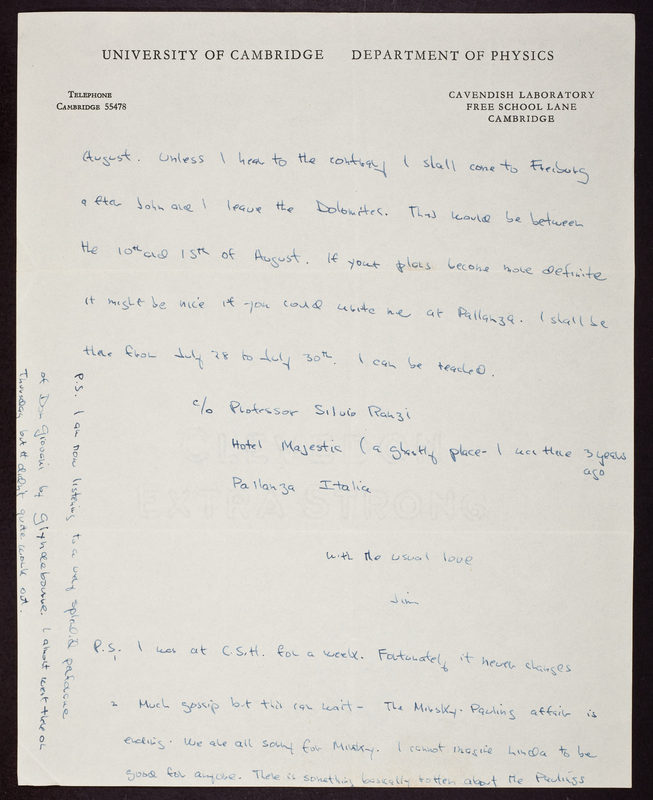 UNIVERSITY OF CAMBRIDGE DEPARTMENT OF PHYSICS
TELEPHONE
CAMBRIDGE 55478
CAVENDISH LABORATORY
FREE SCHOOL LANE
CAMBRIDGE
August. Unless I hear to the contrary I shall come to Freiburg
after John and I leave the Dolomites. This would be between
the 10th and 15th of August. If your plans become more definite
it might be nice if you could write me at Pallanza. I shall be
there from July 28 to July 30th. I can be reached.
c/o Professor Silvio Ranzi
Hotel Majestic (a ghastly place - I was there 3 years
ago
Pallanza Italia
with the usual love
Jim
P.S. I was at C.S.H. for a week. Fortunately it never changes
1
2 Much gossip but this can wait - The Minsky-Pauling affair is
ending. We are all sorry for Minsky. I cannot imagine Linda to be
good for anyone. There is something basically rotten about the Paulings
P.S. I am now listening to a very splendid
of Don Giovanni by Glyndebourne. I almost went there on
Thursday but it didn't quite work out.